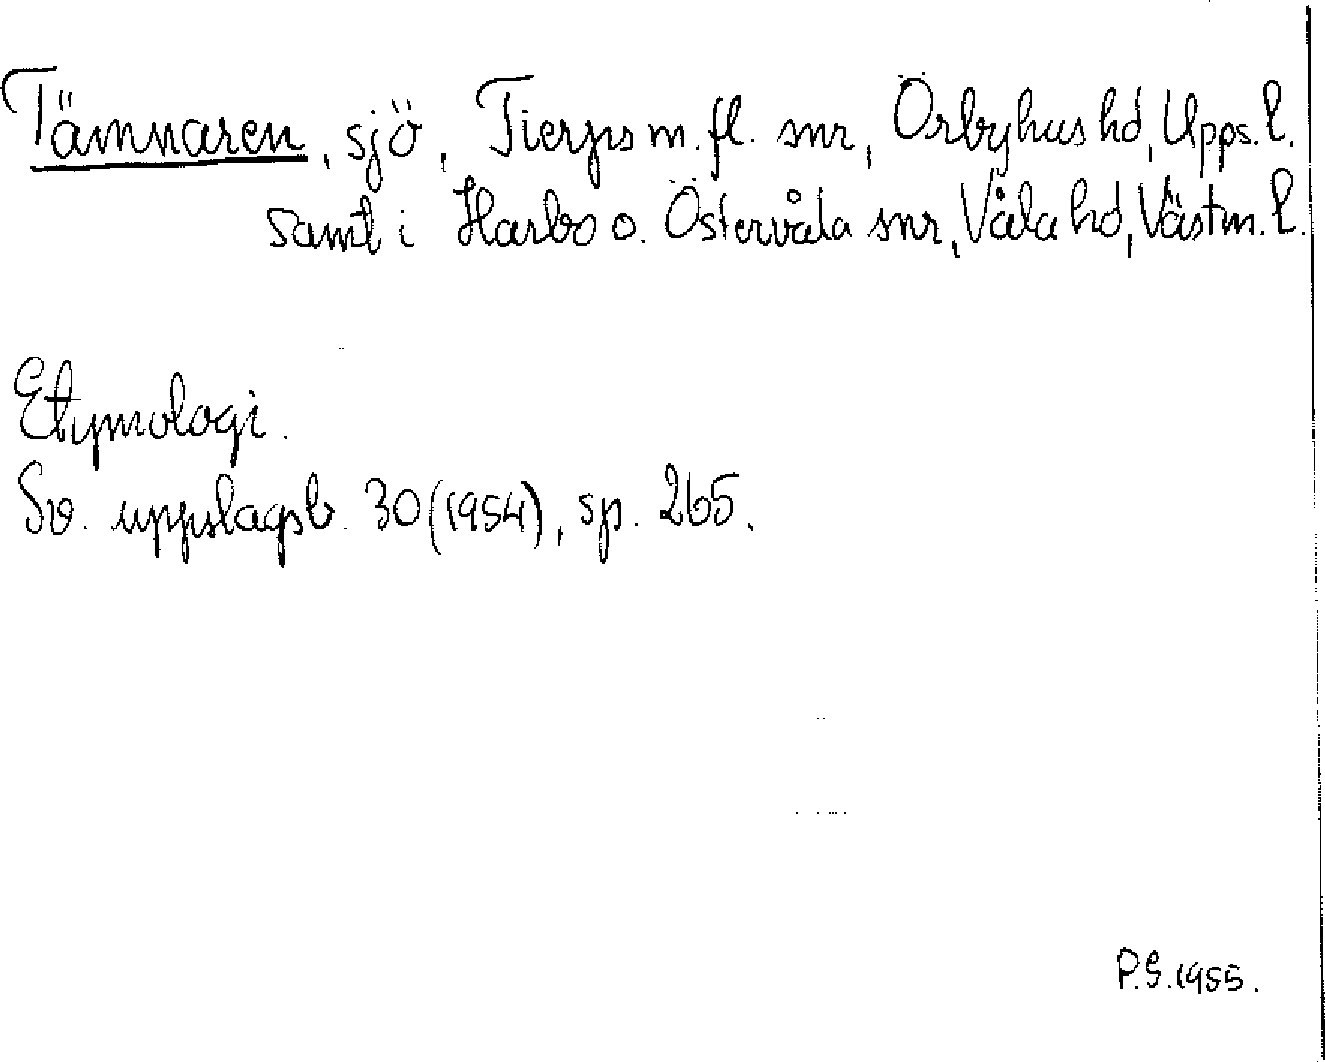 Tämnaren, sjö, Tierps m. fl. snr, Örbyhus hd, Upps. l.
samt i Harbo o. Östervåla snr, Våla hd, Västm. l.
Etymologi.
Sv. uppslagsb. 30 (1954), sp. 265.
P.S. 1955.